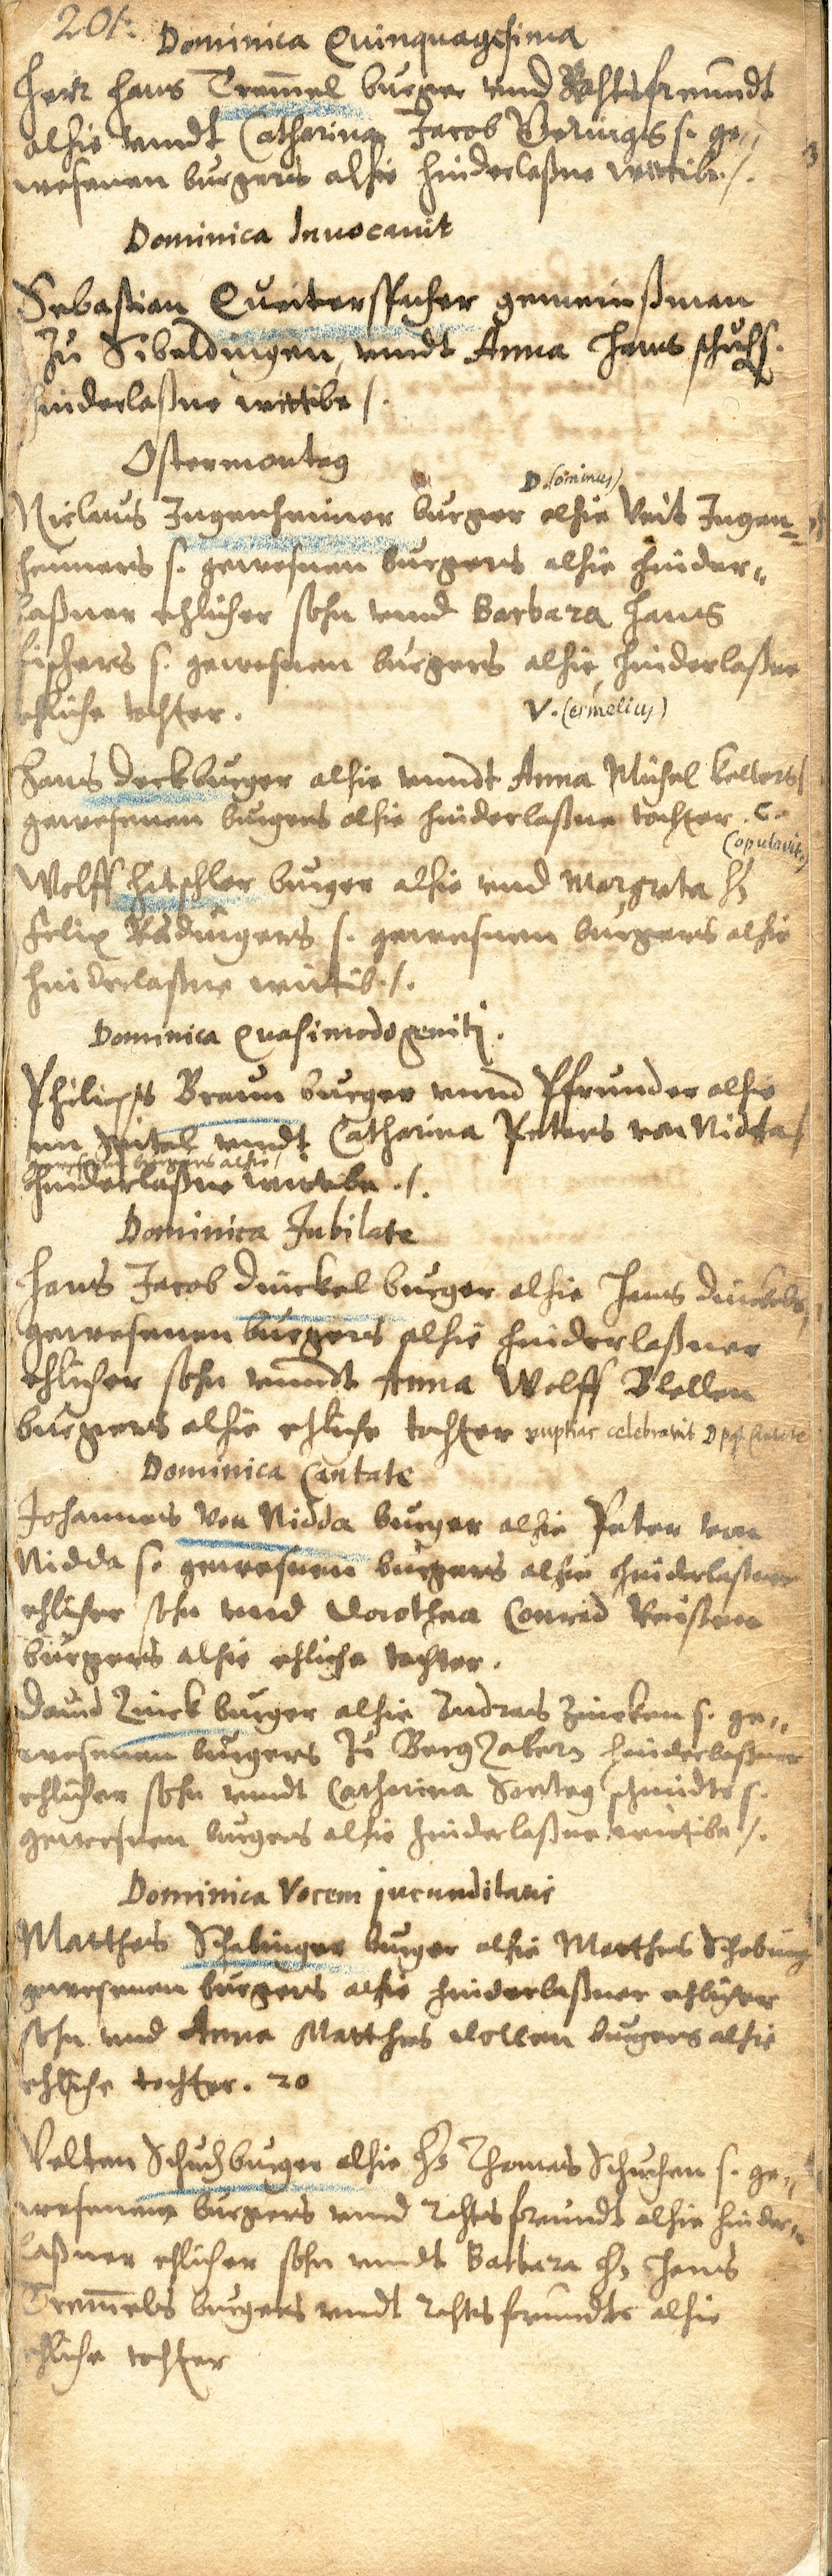 201.
Dominica Quinquagesima
Herr Hans Tremmel burger vnd Rahtsfreundt
alhie vnndt Catharina Jacob s. ge„
wesenen burgers alhie hinderlaßne wittib./.
Dominica Inuocauit
Sebastian Queiterspacher gemeinßman
Zu Sibeldingen, vnndt Anna Hans Schuhs.
hinderlaßne wittibe /.
Ostermontag
D.(ominus)
Niclaus Ingenheimer burger alhie Veit Ingen=
heimers s. gewesnen burgers alhie hinder„
laßner ehlicher sohn vnnd Barbara Hans
fischers s. gewesnen burgers alhie, hinderlaßne
ehliche tochter.
V.(ermelius)
Hans Deck burger alhie vnndt Anna Michel Kellers
gewesenen burgers alhie hinderlaßne tochter. C.
(opulavit)
Wolff Hitschler burger alhie vnd Margreta H.
Felix Rüdingers s. gewesnen burgers alhie
hinderlaßne wittib./.
Dominica Quasimodogeniti.
Philips Braun burger vnnd Pfründer alhie
im Spital vnndt Catharina Peters von Nidda
gewesenen burgers alhie
hinderlaßne wittibe ./.
Dominica Jubilate
Hans Jacob Dinckel burger alhie Hans Dinckels
gewesenen burgers alhie hinderlaßner
ehlicher sohn vnndt Anna Wolff Blellen
burgers alhie ehliche tochter nuptias celebravit D. Cantate
Dominica Cantate
Johannes von Nidda burger alhie Peter von
Nidda s. gewesnen burgers alhie hinderlaßner
ehlicher sohn vnnd Dorothea Conrad Reußen
burgers alhie ehliche tochter.
Dauid Zinck burger alhie Andreas Zincken s. ge„
wesenen burgers Zu BergZabern hinderlaßner
ehlicher sohn vnndt Catharina Sontag Schmidts s.
gewesnen burgers alhie hinderlaßne wittibe /.
Dominica Vocem jucunditatis
Matthes Schabinger burger alhie Matthes Schabing
gewesenen burgers alhie hinderlaßner ehlicher
sohn vnd Anna Matthes Dollen burgers alhie
ehliche tochter. 20
Velten Schuch burger alhie H. Thomas Schuchen s. ge„
wesenen burgers vnnd rahtsfreundt alhie hinder„
laßner ehlicher sohn vnndt Barbara H. Hans
Tremmels burgers vndt rahtsfreundts alhie
ehliche tochter